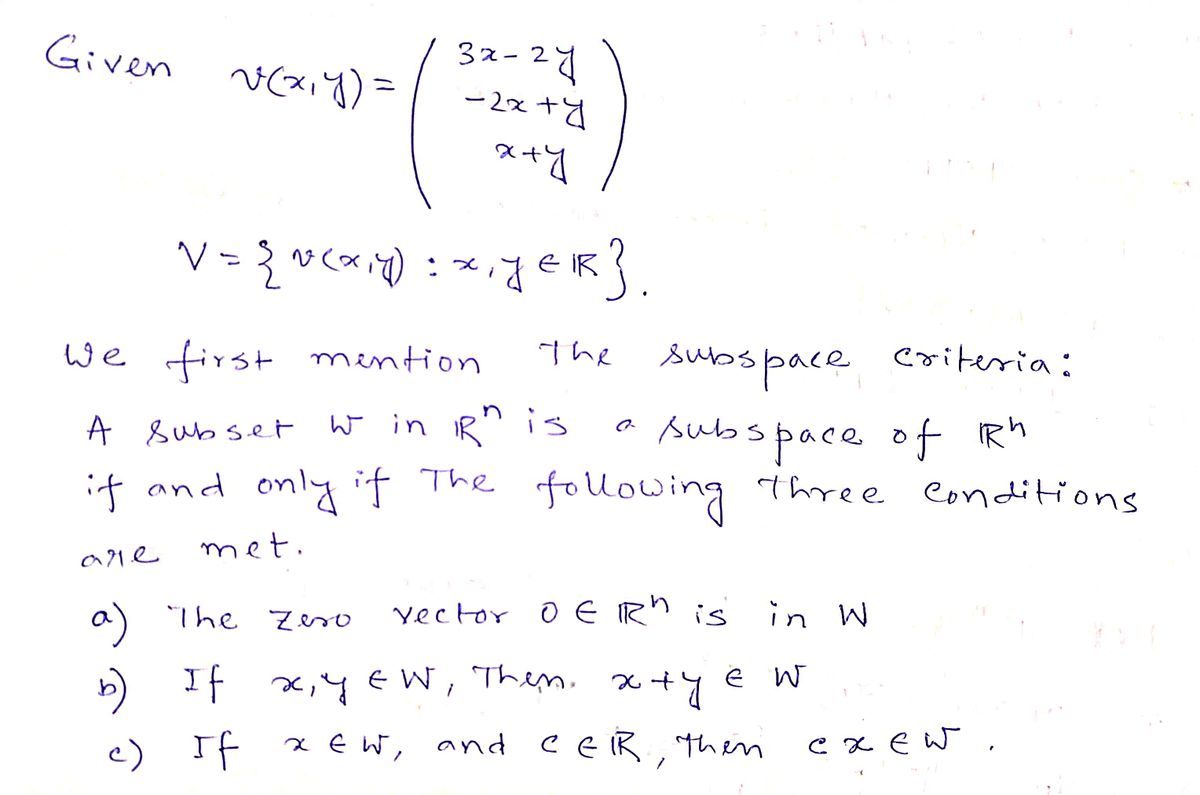 Given v(x,y) = ( 3x - 2y
-2x + y
x + y )
V = { v(x,y) : x, y ∈ ℝ }.
We first mention the subspace criteria:
A subset W in ℝⁿ is a subspace of ℝⁿ
if and only if The following three conditions
are met.
a) The zero vector 0 ∈ ℝⁿ is in W
b) If x, y ∈ W, Then. x + y ∈ W
c) If x ∈ W, and c ∈ ℝ, Then cx ∈ W.